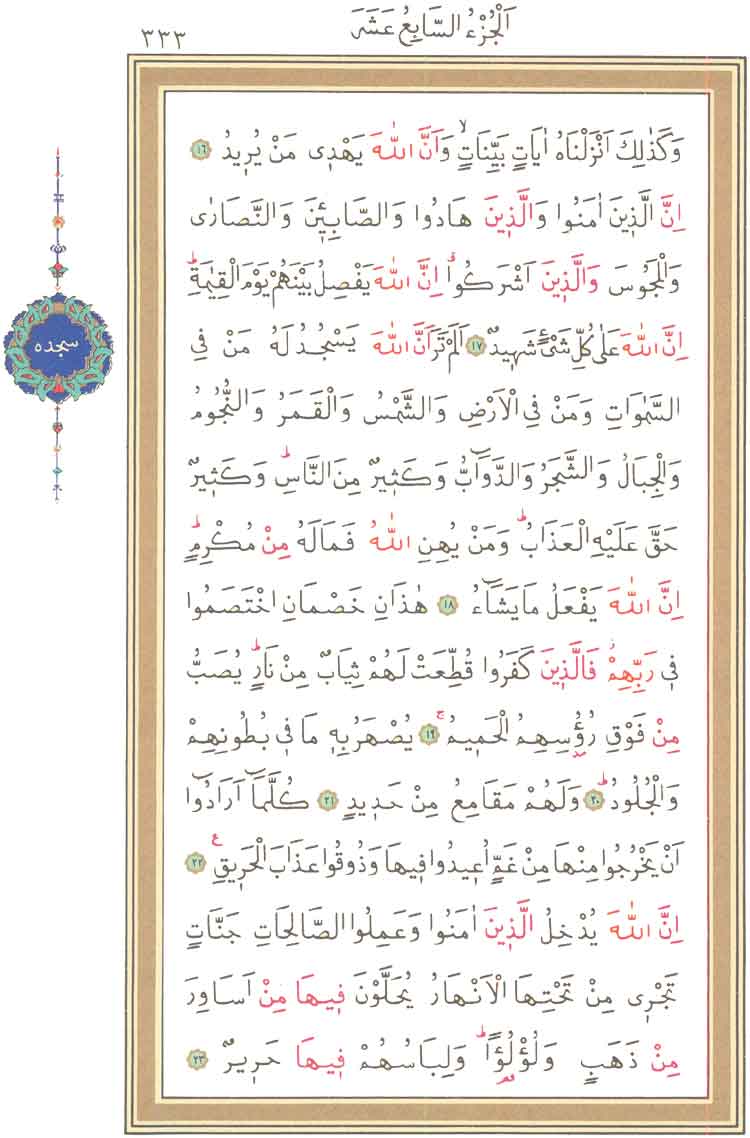 اَلْجُزْءُ السَّابِعُ عَشَرَ
٣٣٣
وَكَذٰلِكَ اَنْزَلْنَاهُ اٰيَاتٍ بَيِّنَاتٍۙ وَاَنَّ اللّٰهَ يَهْدٖى مَنْ يُرٖيدُ ١٦
اِنَّ الَّذٖينَ اٰمَنُوا وَالَّذٖينَ هَادُوا وَالصَّابِـٖٔينَ وَالنَّصَارٰى
وَالْمَجُوسَ وَالَّذٖينَ اَشْرَكُواۗ اِنَّ اللّٰهَ يَفْصِلُ بَيْنَهُمْ يَوْمَ الْقِيٰمَةِؕ
اِنَّ اللّٰهَ عَلٰى كُلِّ شَیْءٍ شَهٖيدٌ ١٧ اَلَمْ تَرَ اَنَّ اللّٰهَ يَسْجُدُ لَهُ مَنْ فِى
السَّمٰوَاتِ وَمَنْ فِى الْاَرْضِ وَالشَّمْسُ وَالْقَمَرُ وَالنُّجُومُ
وَالْجِبَالُ وَالشَّجَرُ وَالدَّوَٓابُّ وَكَثٖيرٌ مِنَ النَّاسِؕ وَكَثٖيرٌ
حَقَّ عَلَيْهِ الْعَذَابُؕ وَمَنْ يُهِنِ اللّٰهُ فَمَا لَهُ مِنْ مُكْرِمٍؕ
اِنَّ اللّٰهَ يَفْعَلُ مَا يَشَٓاءُ ١٨ هٰذَانِ خَصْمَانِ اخْتَصَمُوا
فٖى رَبِّهِمْؗ فَالَّذٖينَ كَفَرُوا قُطِّعَتْ لَهُمْ ثِيَابٌ مِنْ نَارٍؕ يُصَبُّ
مِنْ فَوْقِ رُؤُسِهِمُ الْحَمٖيمُۚ ١٩ يُصْهَرُ بِهٖ مَا فٖى بُطُونِهِمْ
وَالْجُلُودُؕ ٢٠ وَلَهُمْ مَقَامِعُ مِنْ حَدٖيدٍ ٢١ كُلَّمَٓا اَرَادُٓوا
اَنْ يَخْرُجُوا مِنْهَا مِنْ غَمٍّ اُعٖيدُوا فٖيهَا وَذُوقُوا عَذَابَ الْحَرٖيقِ ع ٢٢
اِنَّ اللّٰهَ يُدْخِلُ الَّذٖينَ اٰمَنُوا وَعَمِلُوا الصَّالِحَاتِ جَنَّاتٍ
تَجْرٖى مِنْ تَحْتِهَا الْاَنْهَارُ يُحَلَّوْنَ فٖيهَا مِنْ اَسَاوِرَ
مِنْ ذَهَبٍ وَلُؤْلُؤًاؕ وَلِبَاسُهُمْ فٖيهَا حَرٖيرٌ ٢٣
سجده